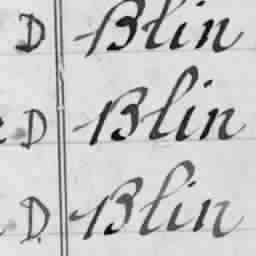 D Blin
D Blin
D. Blin